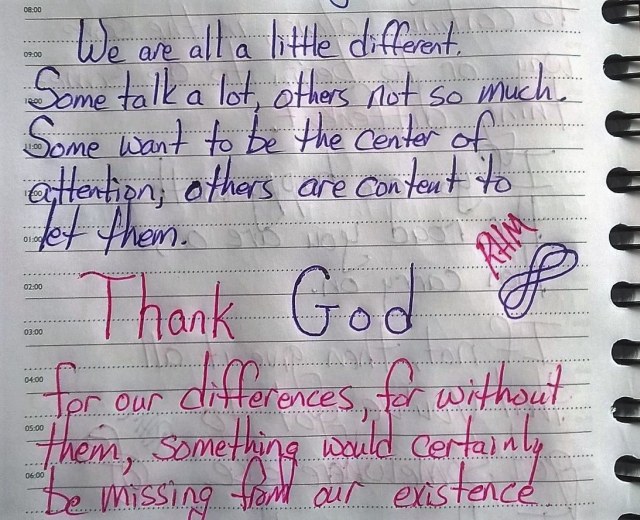 08:00
We are all a little different.
09:00
Some talk a lot, others not so much.
10:00
Some want to be the center of
11:00
attention; others are content to
12:00
let them.
01:00
RAM
02:00
Thank God
03:00
for our differences, for without
04:00
them, something would certainly
05:00
be missing from our existence
06:00